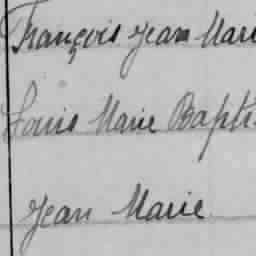 François Jean Mari
Louis Marie Bapti
Jean Marie